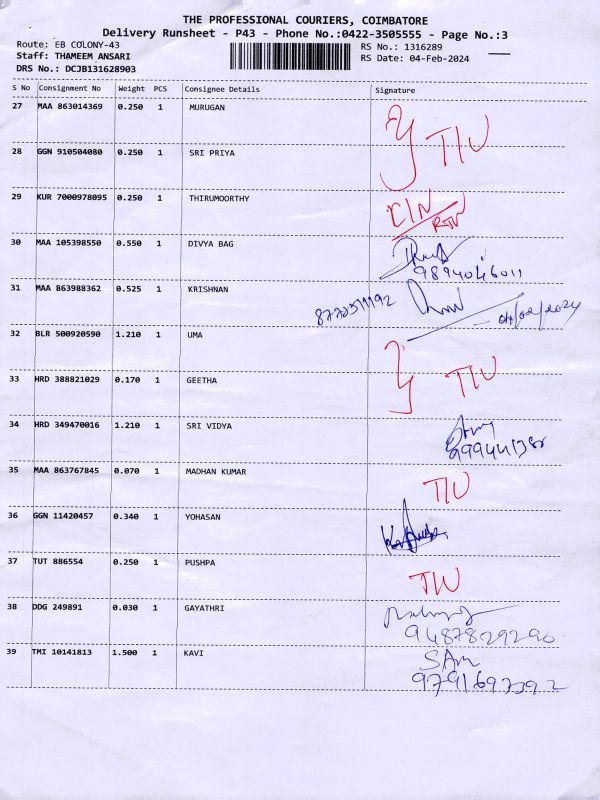 THE PROFESSIONAL COURIERS, COIMBATORE
Delivery Runsheet - P43 - Phone No.:0422-3505555 - Page No.:3
Route: EB COLONY-43 RS No.: 1316289
Staff: THAMEEM ANSARI RS Date: 04-Feb-2024
DRS No.: DCJB131628903
S No Consignment No Weight PCS Consignee Details Signature
27 MAA 863014369 0.250 1 MURUGAN
28 GGN 910504080 0.250 1 SRI PRIYA
29 KUR 7000978095 0.250 1 THIRUMOORTHY
30 MAA 105398550 0.550 1 DIVYA BAG
9894046011
31 MAA 863988362 0.525 1 KRISHNAN
04/02/2024
32 BLR 500920590 1.210 1 UMA
33 HRD 388821029 0.170 1 GEETHA
34 HRD 349470016 1.210 1 SRI VIDYA
35 MAA 863767845 0.070 1 MADHAN KUMAR
36 GGN 11420457 0.340 1 YOHASAN
37 TUT 886554 0.250 1 PUSHPA
38 DDG 249891 0.030 1 GAYATHRI
9487829290
39 TMI 10141813 1.500 1 KAVI
SAM
9791697392